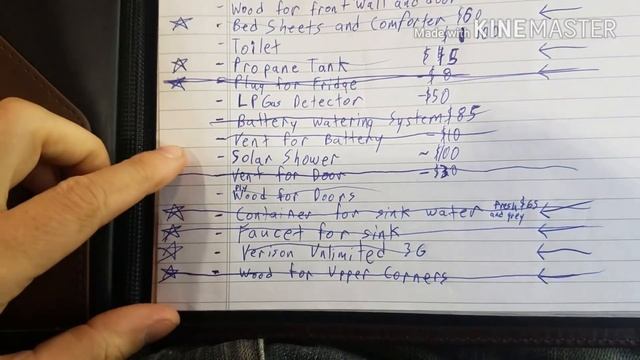 - Wood for front wall and door
Made with KINEMASTER
- Bed Sheets and Comforter $60
- Toilet
- Propane Tank $45
- Plug for Fridge - $8
- LP Gas Detector - $50
- Battery watering System $85
- Vent for Battery - $10
- Solar Shower ~ $100
- Vent for Door - $30
- Ply Wood for Doors
- Container for sink water Fresh $65 and grey
- Faucet for sink
- Verison Unlimited 3G
- Wood for Upper Corners